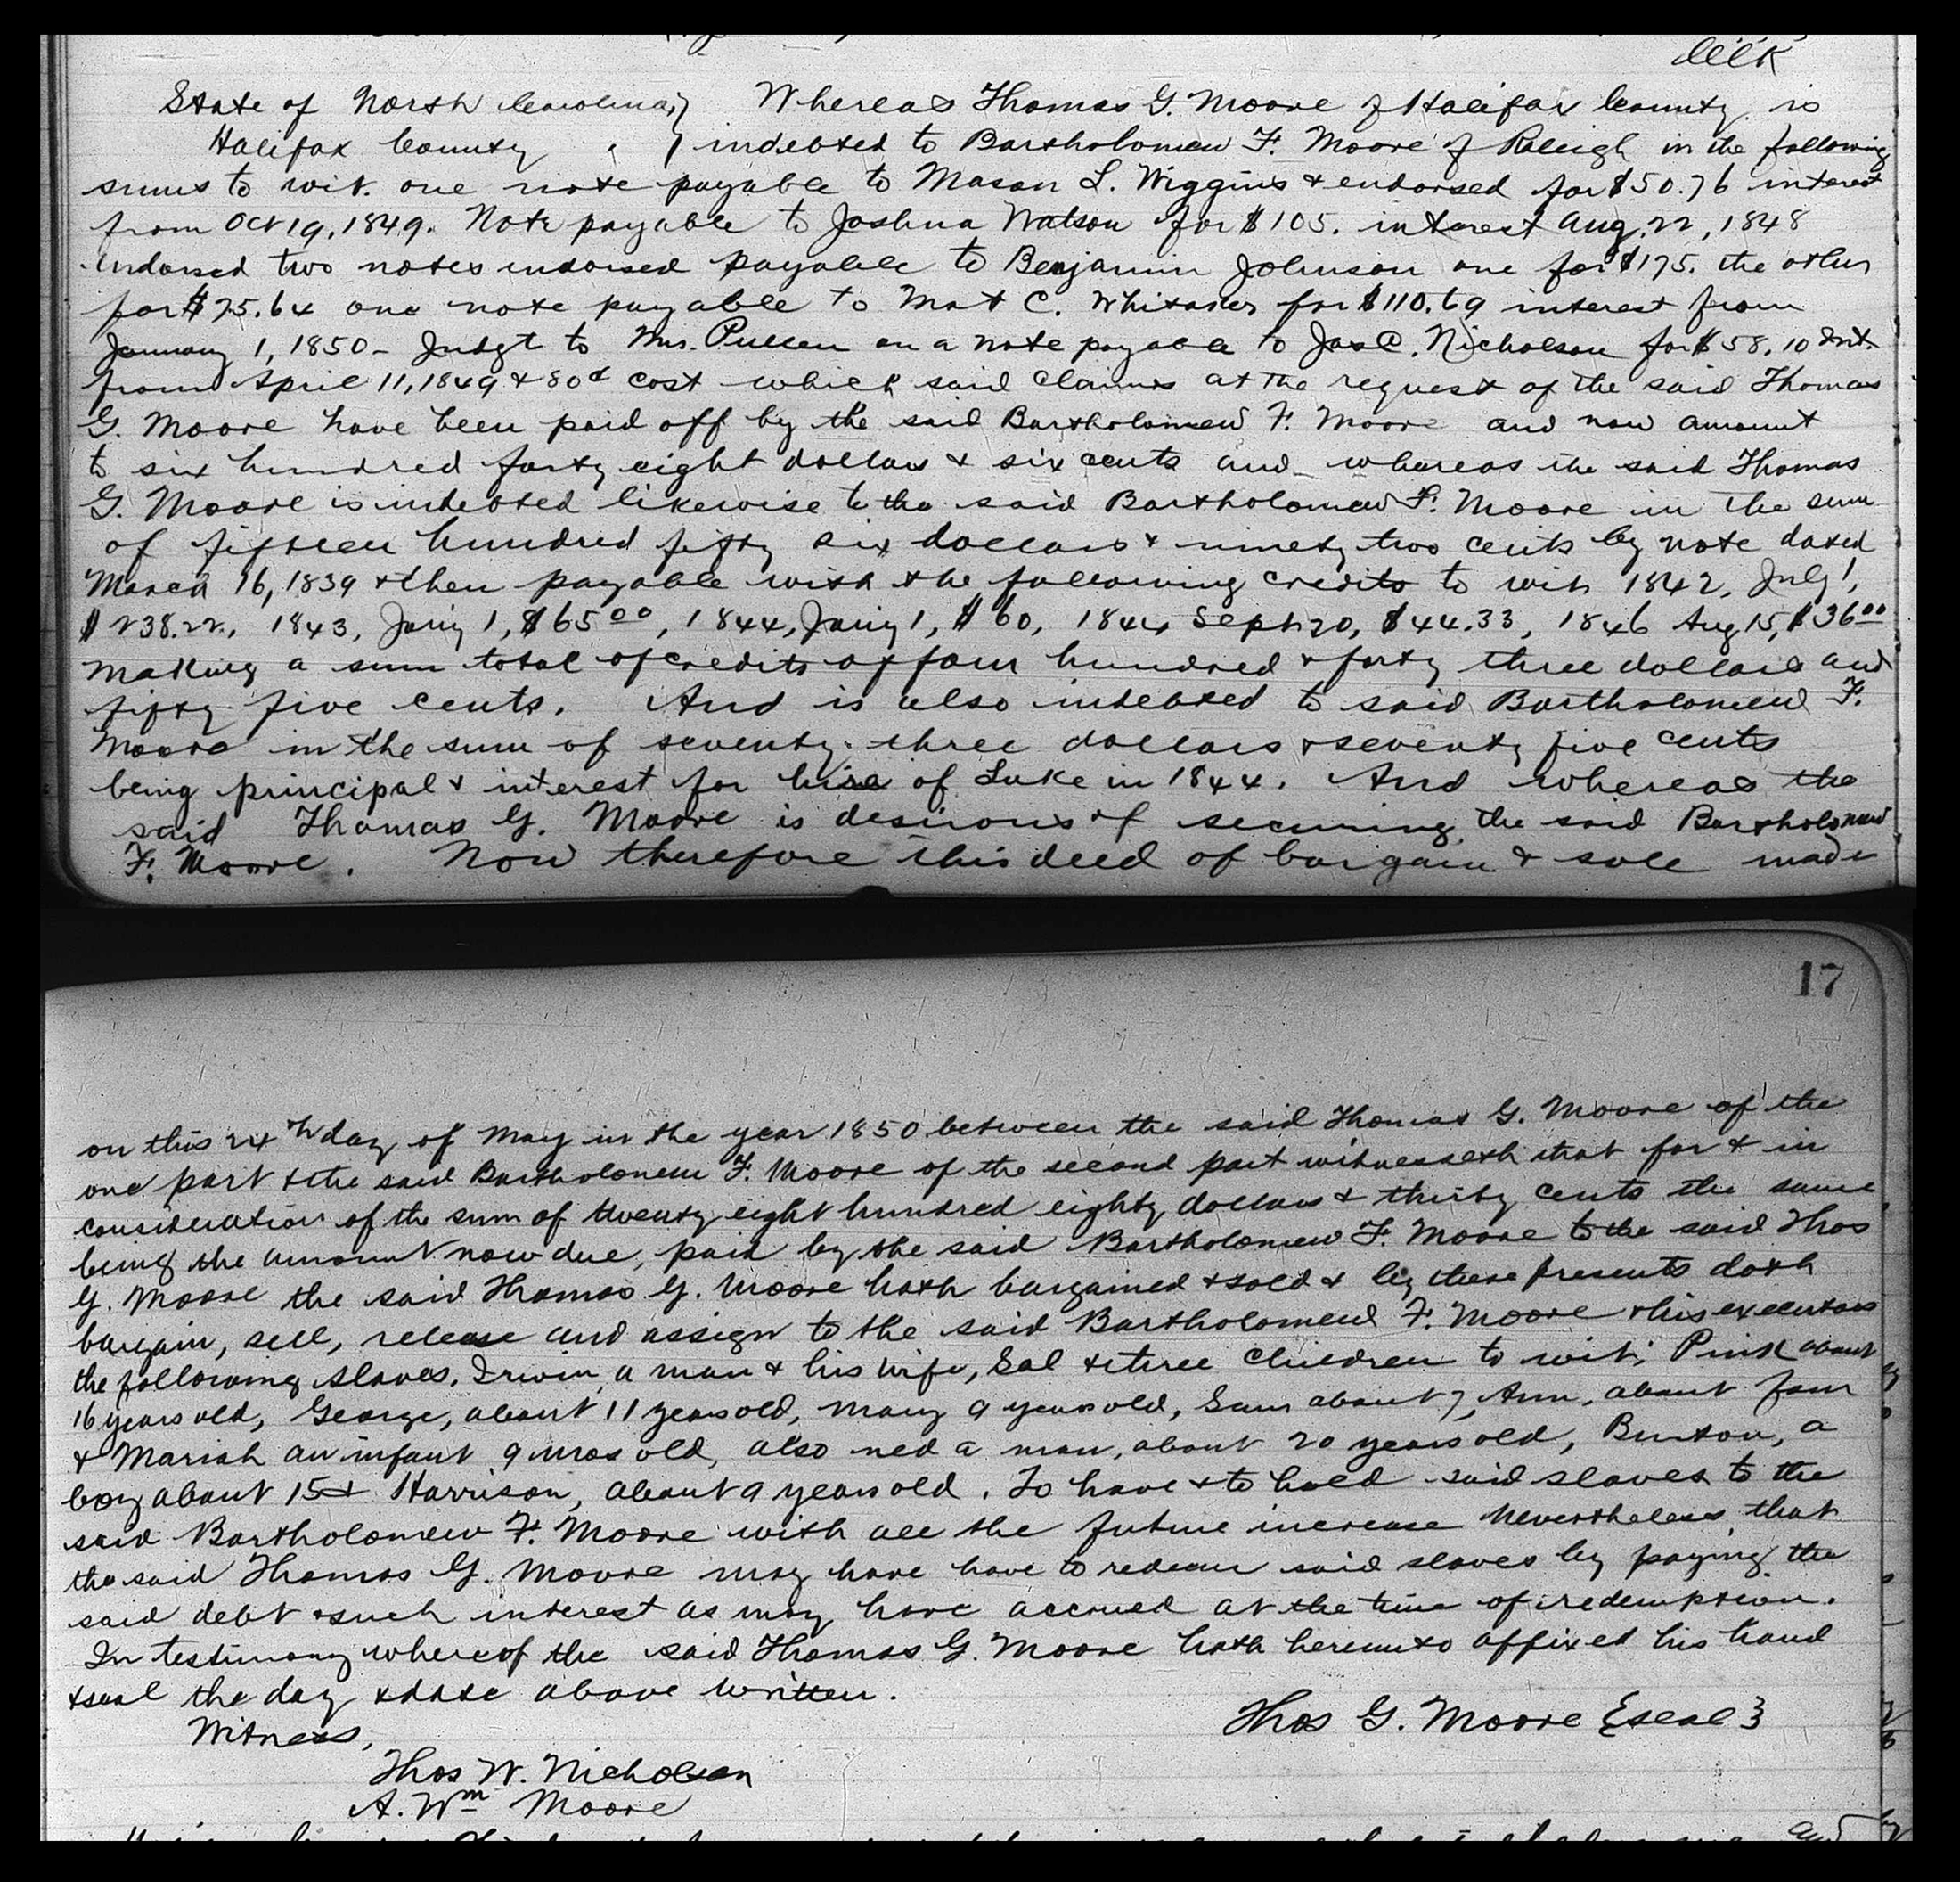 Clerk
State of North Carolina, } Whereas Thomas G. Moore of Halifax County is
Halifax County } indebted to Bartholomew F. Moore of Raleigh in the following
sums to wit. one note payable to Mason L. Wiggins & endorsed for $50.76 interest
from Oct 19, 1849. Note payable to Joshua Watson for $105. interest Aug. 22, 1848
indorsed two notes indorsed payable to Benjamin Johnson one for $175. the other
for $75.64 one note payable to Mat C. Whitaker for $110.69 interest from
January 1, 1850 - Judgt to Mrs. Pullen on a note payable to Jas C. Nicholson for $58.10 Int.
from April 11, 1849 & 80¢ cost which said claims at the request of the said Thomas
G. Moore have been paid off by the said Bartholomew F. Moore and now amount
to six hundred forty eight dollars & six cents and whereas the said Thomas
G. Moore is indebted likewise to the said Bartholomew F. Moore in the sum
of fifteen hundred fifty six dollars & ninety two cents by note dated
March 16, 1839 & then payable with the following credits to wit 1842, July 1,
$238.22., 1843, Jan'y 1, $65 00, 1844, Jan'y 1, $60, 1844 Sept 20, $44.33, 1846 Aug 15, $36 00
making a sum total of credits of four hundred & forty three dollars and
fifty five cents. And is also indebted to said Bartholomew F.
Moore in the sum of seventy three dollars & seventy five cents
being principal & interest for hire of Luke in 1844. And whereas the
said Thomas G. Moore is desirous of securing the said Bartholomew
F. Moore. Now therefore this deed of bargain & sale made
17
on this 24th day of May in the year 1850 between the said Thomas G. Moore of the
one part & the said Bartholomew F. Moore of the second part witnesseth that for & in
consideration of the sum of twenty eight hundred eighty dollars & thirty cents the same
being the amount now due, paid by the said Bartholomew F. Moore to the said Thos
G. Moore the said Thomas G. Moore hath bargained & sold & by these presents doth
bargain, sell, release and assign to the said Bartholomew F. Moore & his executors
the following slaves. Irwin, a man & his wife, Sal & three children to wit: Pink about
16 years old, George, about 11 years old, Mary 9 years old, Sam about 7, Ann, about four
& Mariah an infant 9 mos old, also Ned a man, about 20 years old, Burton, a
boy about 15 & Harrison, about 9 years old. To have & to hold said slaves to the
said Bartholomew F. Moore with all the future increase Nevertheless, that
the said Thomas G. Moore may have have to redeem said slaves by paying the
said debt & such interest as may have accrued at the time of redemption.
In testimony whereof the said Thomas G. Moore hath hereunto affixed his hand
& seal the day & date above written.
Thos G. Moore {seal}
Witness,
Thos W. Nicholson
A. Wm Moore